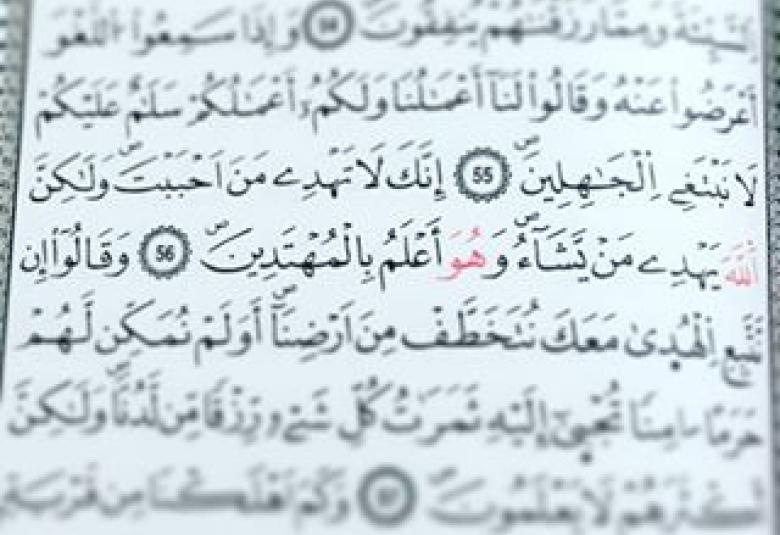 اَلسَّيِّئَةَ وَمِمَّا رَزَقْنَٰهُمْ يُنفِقُونَۖ 54 وَإِذَا سَمِعُواْ اُللَّغْوَ
أَعْرَضُواْ عَنْهُ وَقَالُواْ لَنَآ أَعْمَٰلُنَا وَلَكُمُۥٓ أَعْمَٰلُكُمْ سَلَٰمٌ عَلَيْكُمْ
لَا نَبْتَغِے اِلْجَٰهِلِينَۖ 55 إِنَّكَ لَا تَهْدِے مَنَ اَحْبَبْتَۖ وَلَٰكِنَّ
اَللَّهَ يَهْدِے مَنْ يَّشَآءُۖ وَهُوَ أَعْلَمُ بِالْمُهْتَدِينَۖ 56 وَقَالُوٓاْ إِن
نَّتَّبِعِ اِلْهُدَىٰ مَعَكَ نُتَخَطَّفْ مِنَ اَرْضِنَآۖ أَوَلَمْ نُمَكِّن لَّهُمْ
حَرَماً ءَامِناً تُجْبَىٰٓ إِلَيْهِ ثَمَرَٰتُ كُلِّ شَےْءٍ رِّزْقاً مِّن لَّدُنَّاۖ وَلَٰكِنَّ
أَكْثَرَهُمْ لَا يَعْلَمُونَۖ 57 وَكَمَ اَهْلَكْنَا مِن قَرْيَةِۢ